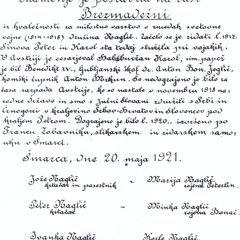 Znamenje je postavila na čast
Brezmadežni
in hvaležnosti za milostno varstvo v minulih svetovne
vojne (1914-1918) družina Naglič, začelo se je zidati l. 1917.
Sinova Peter in Karol sta tedaj služila pri vojakih.
V Avstriji je cesarjeval Habsburžan Karol, im. papež
je bil Benedikt XV., ljubljanski škof dr. Anton Bon. Jeglič,
komški župnik Anton Mrkun. Še nedograjeno je bilo za
časa razpada Avstrije, ko so nastale v novembru 1918 na-
rodne države in smo s Južni Slovani združili s Srbi in
Črnogorci v kraljevino Srbov-Hrvatov in Slovencev pod
kraljem Petrom. Dograjeno je bilo l. 1920., izvršeno po
Francu Zabavniku, slikarskem in zidarskem samou-
uku v Šmarci.
Šmarca, dne 20. maja 1921.
Jože Naglič
krtačar in posestnik
Marija Naglič
rojena Peterlin.
Peter Naglič
krtačar
Minka Naglič
rojena Donač.
Ivanka Naglič
Karle Naglič